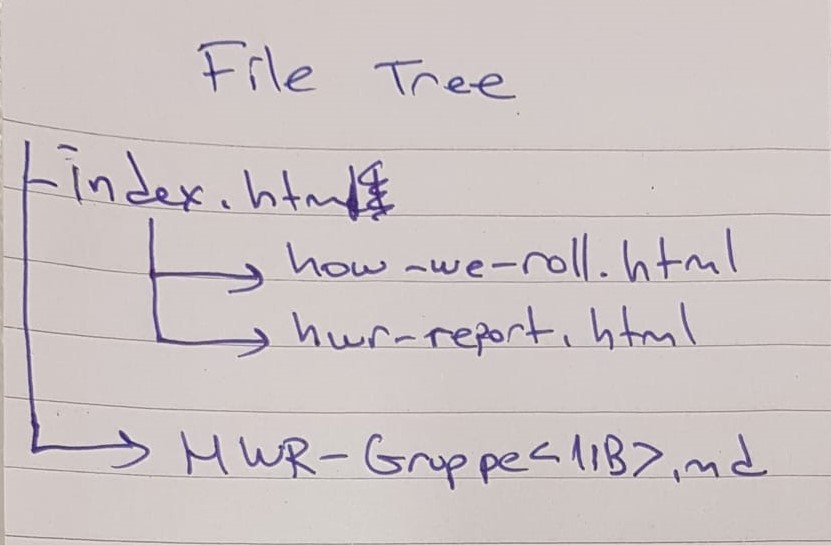 File Tree
index.html
how-we-roll.html
hwr-report.html
HWR-Gruppe<11B>.md